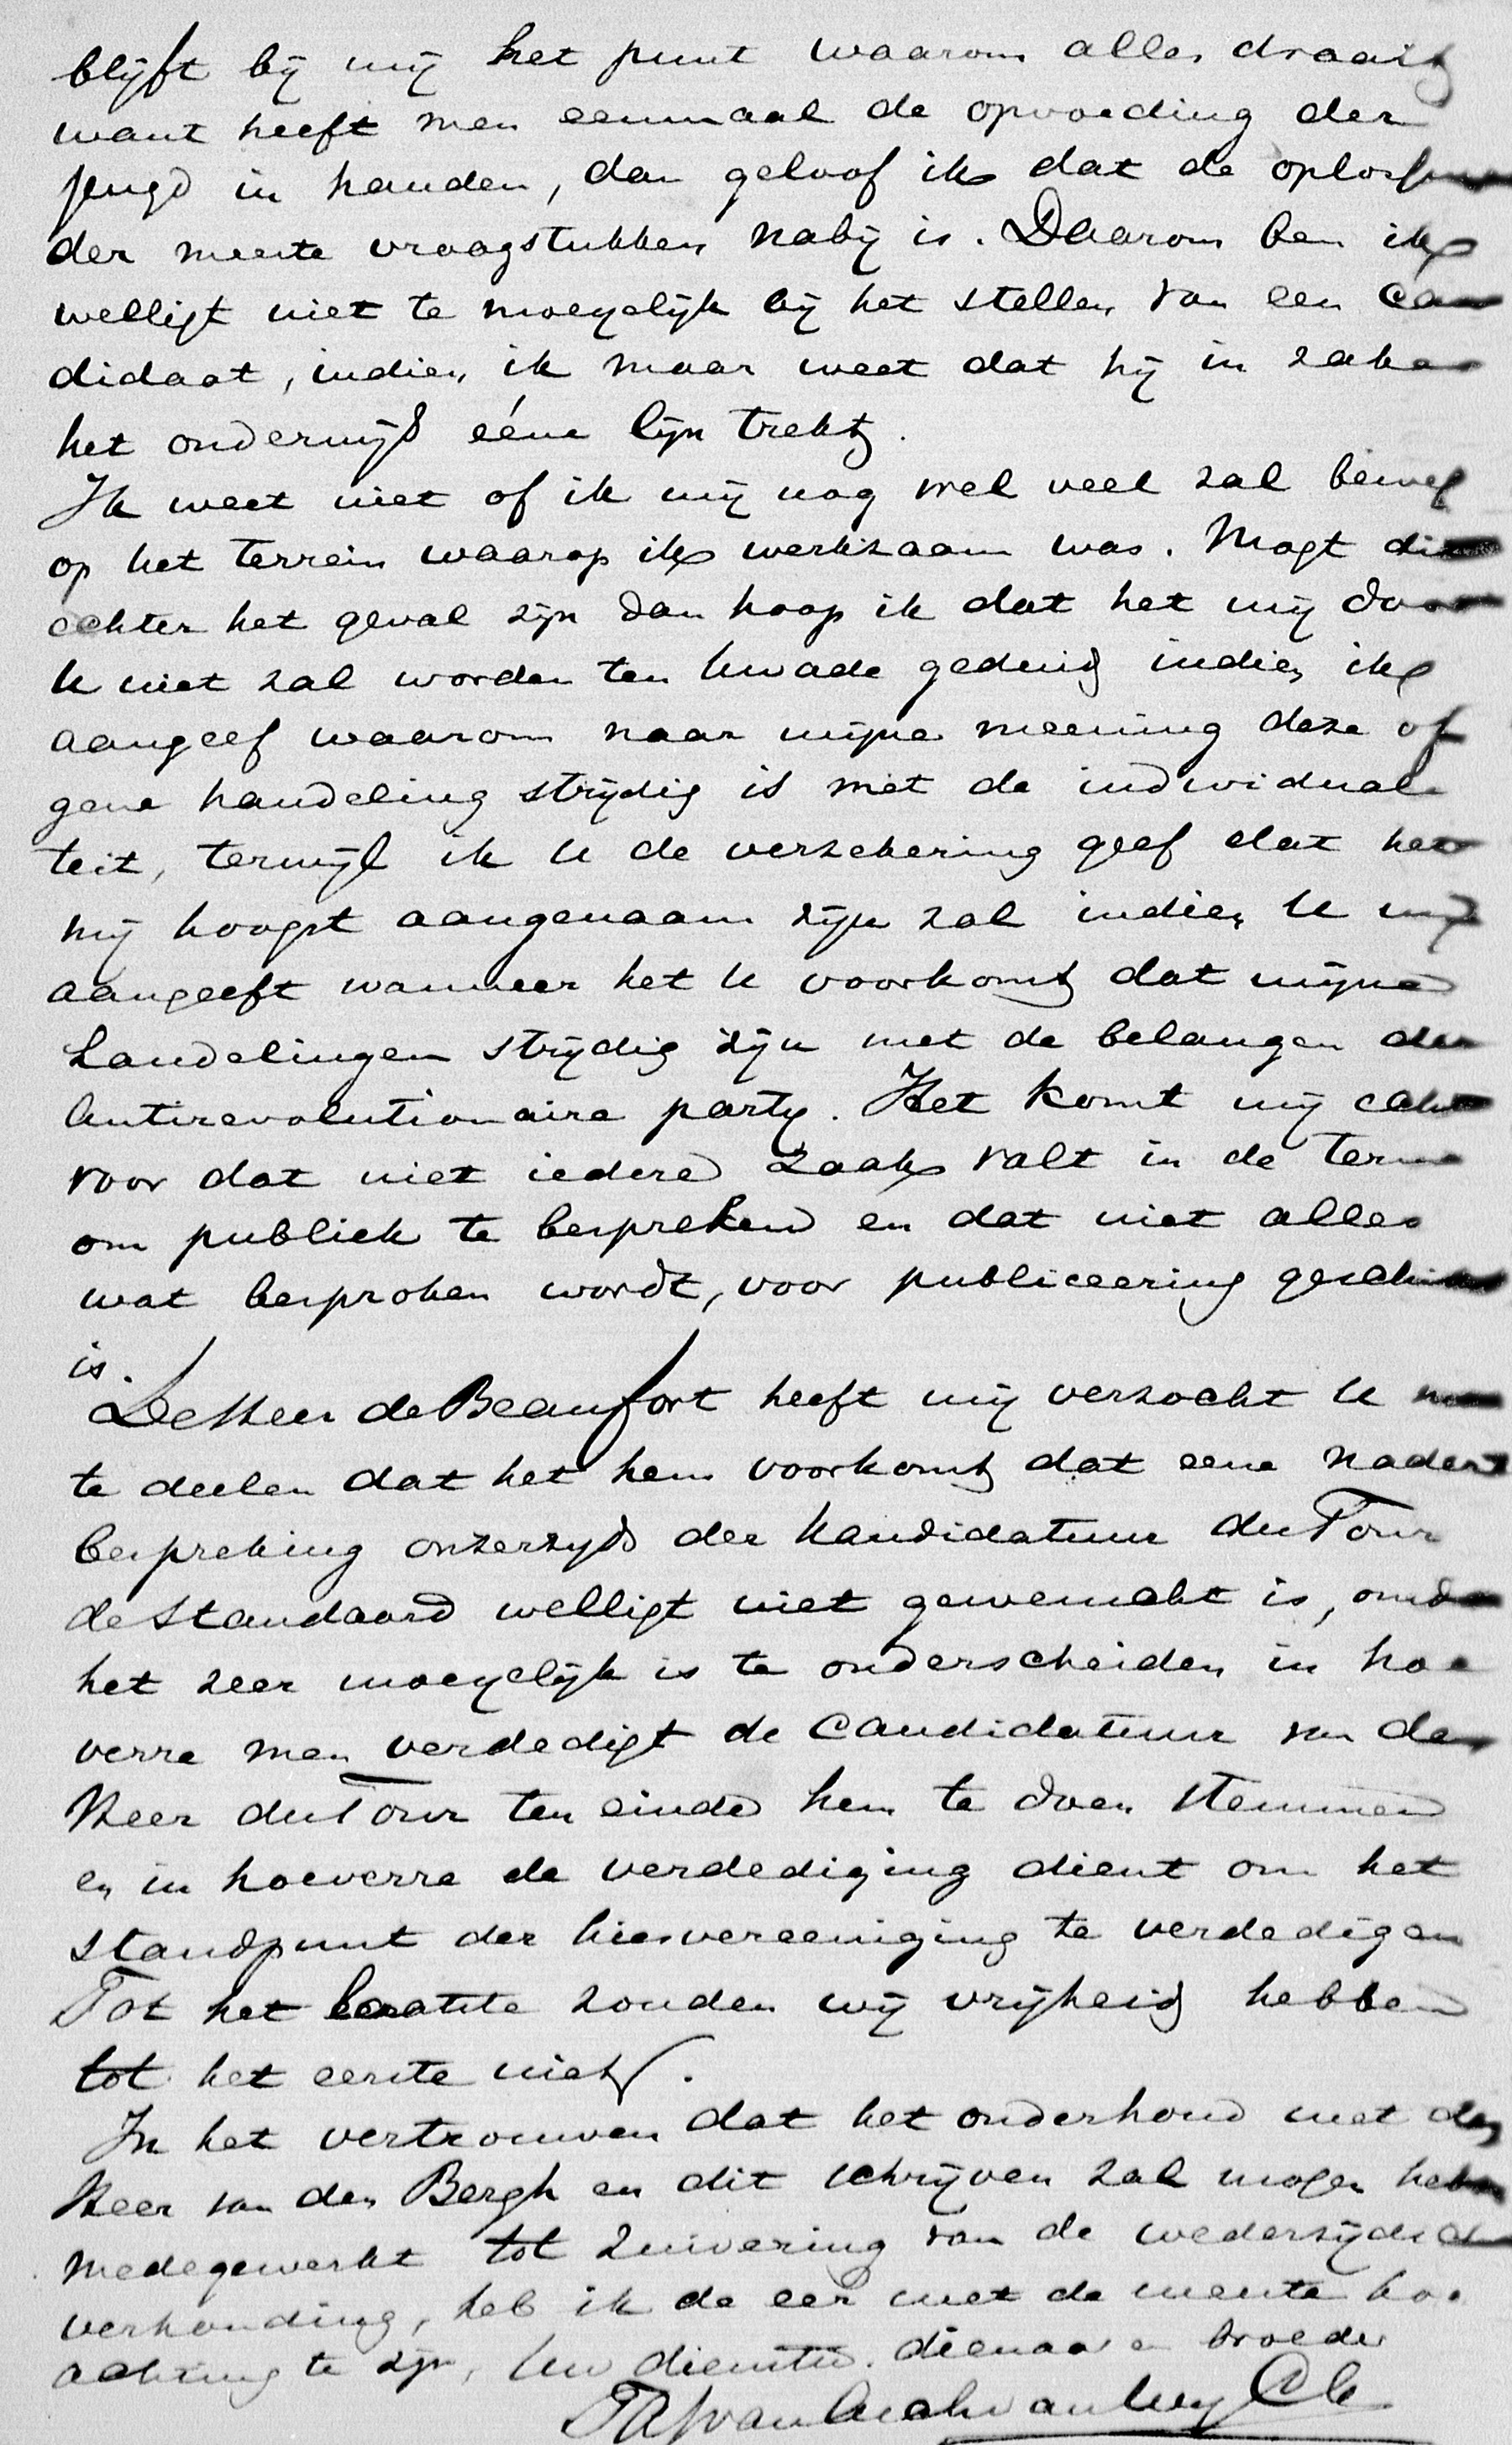 blijft bij mij het punt waarom alles draait
want heeft men eenmaal de opvoeding der
jeugd in handen, dan geloof ik dat de oplossing
der meeste vraagstukken nabij is. Daarom ben ik
welligt niet te moeyelijk bij het stellen van een can
didaat, indien ik maar weet dat hij in zake
het onderwijs ééne lijn trekt.
Ik weet niet of ik mij nog wel veel zal beweg
op het terrein waarop ik werkzaam was. Mogt dit
echter het geval zijn dan hoop ik dat het mij door
U niet zal worden ten kwade geduid indien ik
aangeef waarom naar mijne meening deze of
gene handeling strijdig is met de individuali
teit, terwijl ik U de verzekering geef dat het
mij hoogst aangenaam zijn zal indien U mij
aangeeft wanneer het U voorkomt dat mijne
handelingen strijdig zijn met de belangen der
Antirevolutionaire party. Het komt mij echter
voor dat niet iedere zaak valt in de term
om publiek te bespreken en dat niet alles
wat besproken wordt, voor publiceering geschikt
is.
De Heer de Beaufort heeft mij verzocht U mee
te deelen dat het hem voorkomt dat eene nadere
bespreking onzerzyds der kandidatuur du Tour
de Standaard welligt niet gewenscht is, omdat
het zeer moeyelijk is te onderscheiden in hoe
verre men verdedigt de candidatuur van den
Heer du Tour ten einde hem te doen stemmen
en in hoeverre de verdediging dient om het
standpunt der kiesvereeniging te verdedigen
Tot het laatste zouden wij vrijheid hebben
tot het eerste niet.
In het vertrouwen dat het onderhoud met den
Heer van den Bergh en dit schrijven zal mogen hebben
medegewerkt tot zuivering van de wederzijdsche
verhouding, heb ik de eer met de meeste hoo
achting te zijn, Uw dienstw. dienaar en broeder